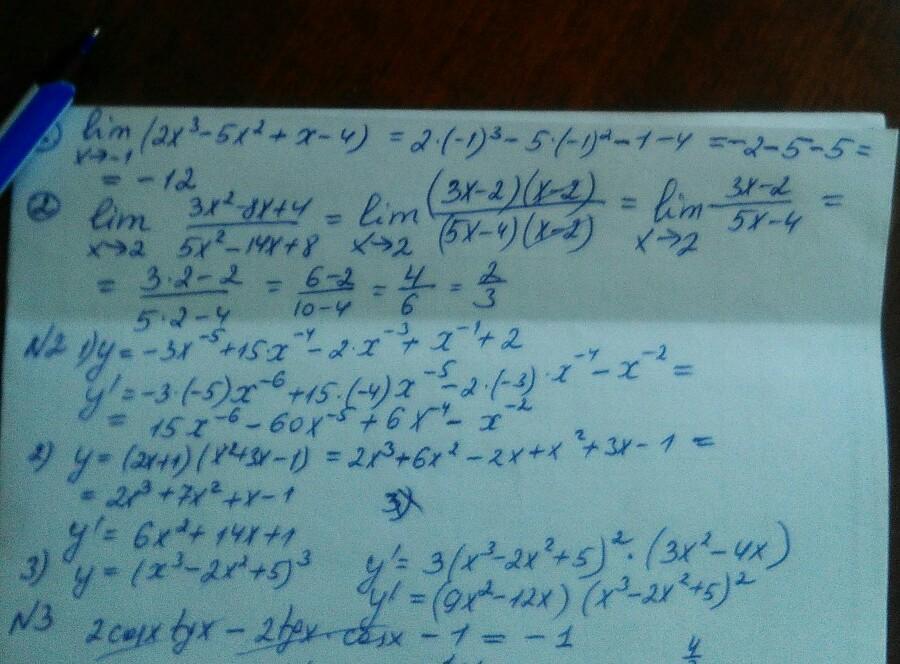 1) lim x→-1 (2x³-5x²+x-4) = 2·(-1)³-5·(-1)²-1-4 =-2-5-5=
= -12
2) lim x→2 (3x²-8x+4)/(5x²-14x+8) = lim x→2 ((3x-2)(x-2))/((5x-4)(x-2)) = lim x→2 (3x-2)/(5x-4) =
= (3·2-2)/(5·2-4) = (6-2)/(10-4) = 4/6 = 2/3
N2 1) y=-3x⁻⁵+15x⁻⁴-2·x⁻³+x⁻¹+2
y'=-3·(-5)x⁻⁶+15·(-4)x⁻⁵-2·(-3)·x⁻⁴-x⁻² =
= 15x⁻⁶-60x⁻⁵+6x⁻⁴-x⁻²
2) y=(2x+1)(x²+3x-1) = 2x³+6x²-2x+x²+3x-1 =
= 2x³+7x²+x-1 3)
y'= 6x²+14x+1
3) y=(x³-2x²+5)³ y'=3(x³-2x²+5)²·(3x²-4x)
y'=(9x²-12x)(x³-2x²+5)²
N3 2cosx tgx - 2tgx cosx - 1 = -1